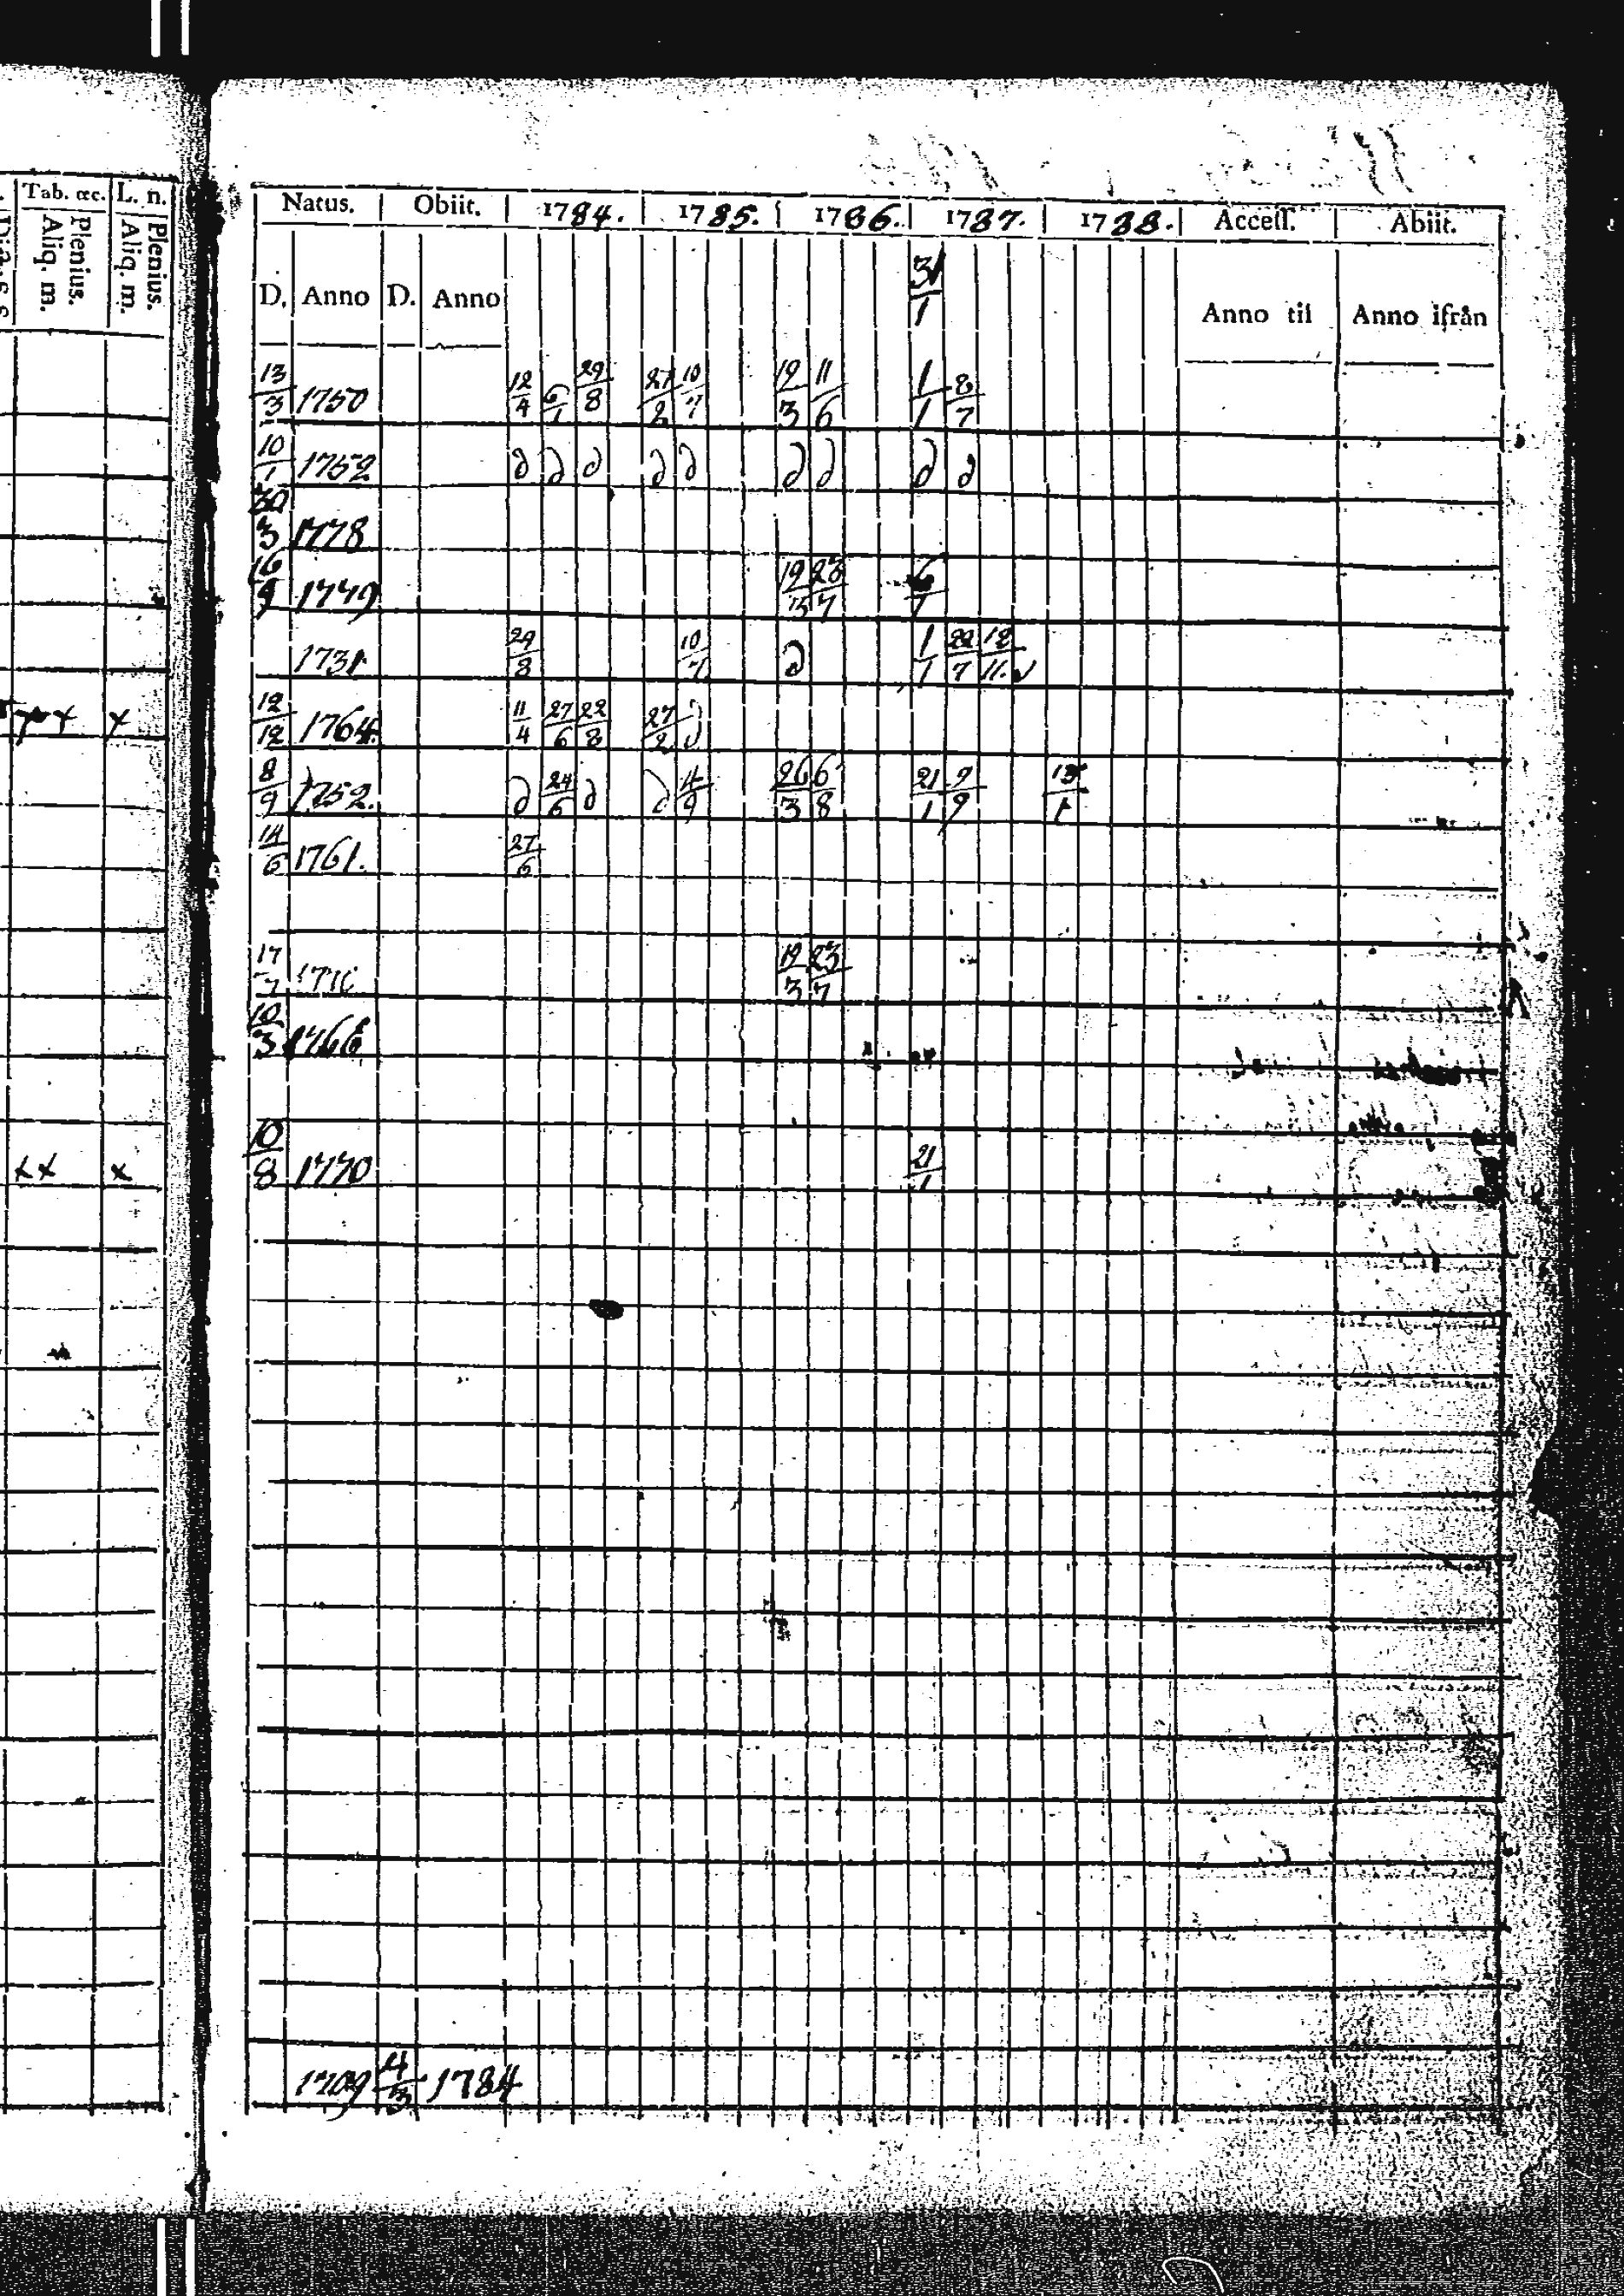 Tab. œc. L. n.
Plenius. Aliq. m. Plenius. Aliq. m.
Natus. Obiit. 1784. 1785. 1786. 1787. 1788. Access. Abiit.
D. Anno D. Anno 31/1 Anno til Anno ifrån
13/3 1750 12/4 6/1 29/8 27/2 10/7 19/3 11/6 1/1 8/7
10/1 1752 ∂ ∂ ∂ ∂ ∂ ∂ ∂ ∂ ∂
3 1778
16/9 1749 19/3 23/7
1731 29/8 10/7 ∂ 1/1 22/7 12/11.
x x
12/12 1764. 11/4 27/6 22/8 27/2 ∂
8/9 1752. ∂ 24/6 ∂ ∂ 4/9 26/3 6/8 21/1 9/9
14/6 1761. 27/6
17/7 19/3 23/7
10/3
x x x
10/8 1770 21/1
1709 4/3 1784